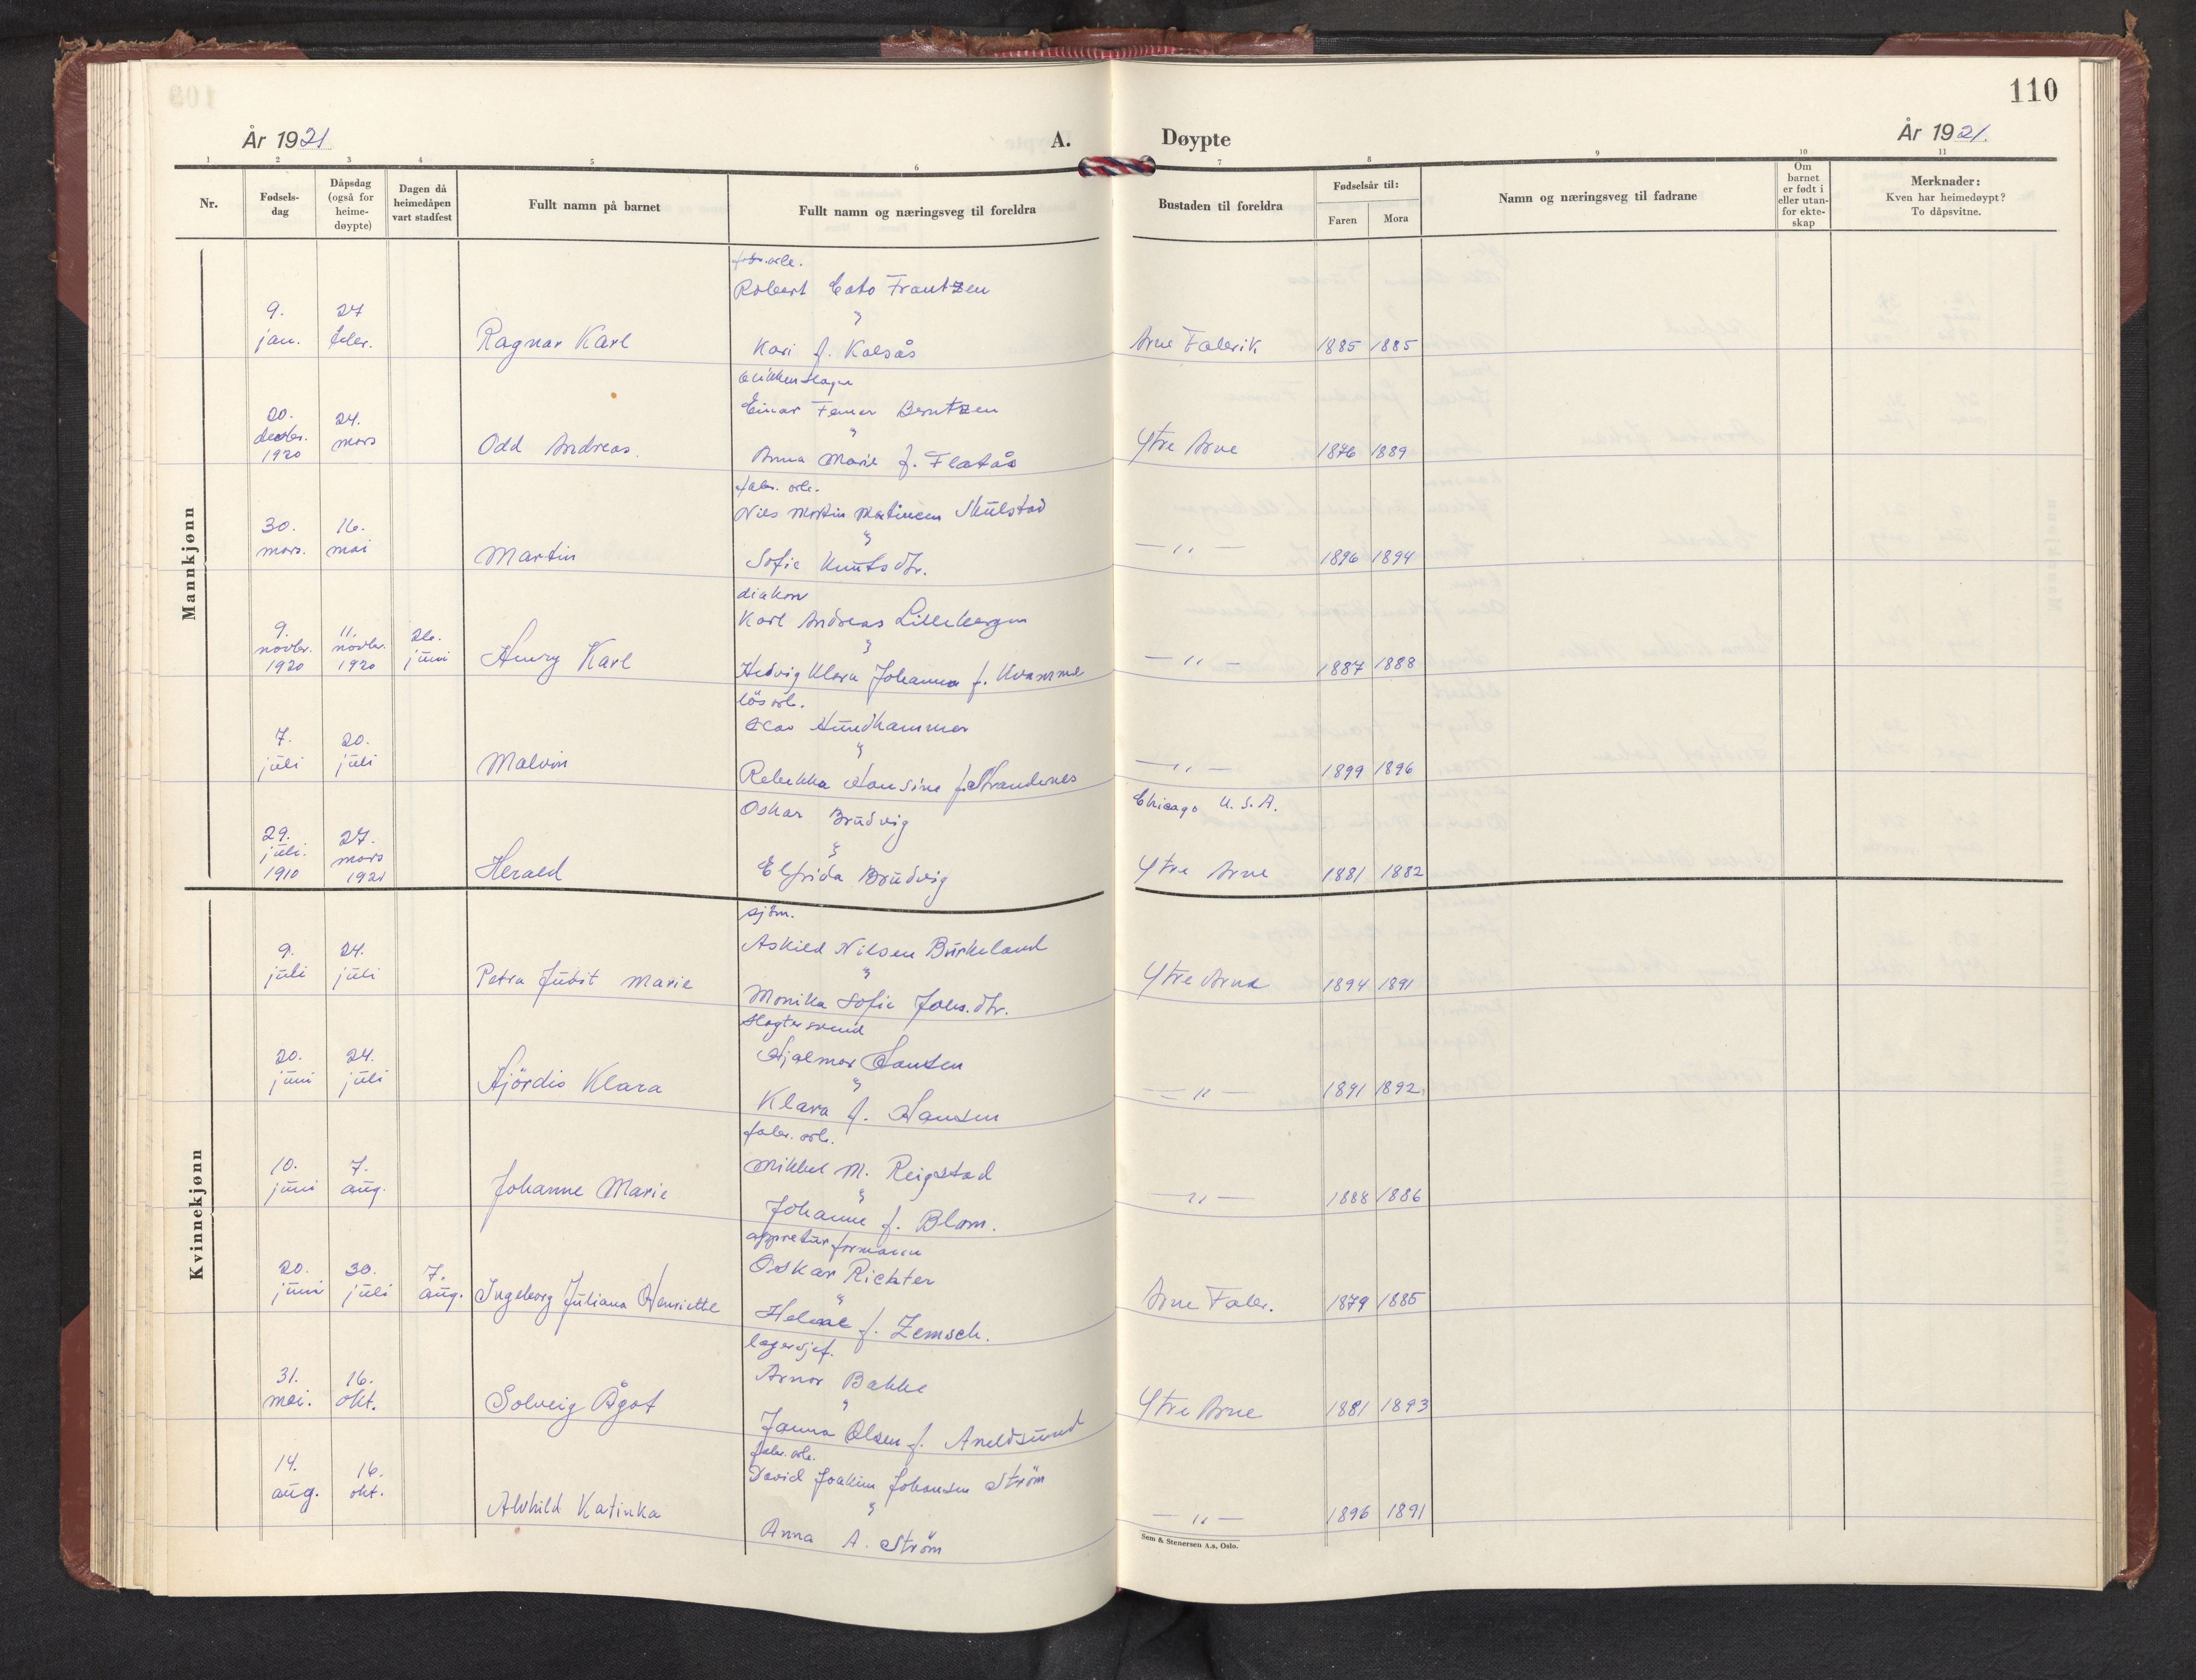 110
År 1921
A.
Døypte
År 1921.
1 2 3 4 5 6 7 8 9 10 11
Nr.
Fødsels-
dag
Dåpsdag
(også for
heime-
døypte)
Dagen då
heimedåpen
vart stadfest
Fullt namn på barnet
Fullt namn og næringsveg til foreldra
Bustaden til foreldra
Fødselsår til:
Faren Mora
Namn og næringsveg til fadrane
Om
barnet
er født i
eller utan-
for ekte-
skap
Merknader:
Kven har heimedøypt?
To dåpsvitne.
Mannkjønn
fabr.arb.
Robert Cato Frantzen
9. 27 "
jan. febr. Ragnar Karl Kari f. Kalsås Arne Fabrik 1885 1885
blikkenslager
20. 24. Einar Bentzen
decbr. mars "
1920 Odd Andreas. Anna Marie f. Flatås Ytre Arne 1876 1889
fabr. arb.
Nils Martin Martinsen Skulstad
30. 16. "
mars. mai Martin Sofie Knutsdtr. — " — 1896 1894
diakon
Karl Andreas Lillebergen
9. 11. 26. "
novbr. novbr. juni
1920 1920 Henry Karl Hedvig Klara Johanna f. Kvamme — " — 1887 1888
lösarb.
Hundhammer
7. 20. "
juli juli Malvin Rebekka Hansine f. Strandenes — " — 1899 1896
Oskar Brudvig Chicago U.S.A.
29. 27. "
juli. mars
1910 1921 Herald Elfrida Brudvig Ytre Arne 1881 1882
Kvinnekjønn
sjöm.
Askild Nilsen Burkeland
9. 24. "
juli juli Petra Judit Marie Monika Sofie Johs.dtr. Ytre Arne 1894 1891
slagtersvend
Hjalmar Hansen
20. 24. "
juni juli Hjördis Klara Klara f. Hansen — " — 1891 1892
fabr. arb.
Mikkel M. Reigstad
10. 7. "
juni aug. Johanne Marie Johanne f. Blom. — " — 1888 1886
appretur formann
Oskar Richter
20. 30. 7. "
juni juli aug. Ingeborg Juliana Henriette Helene f. Zemsch. Arne Fabr. 1879 1885
lagersjef.
Arnor Bakke
31. 16. "
mai. okt. Solveig Ågot Janna Olsen f. Ytre Arne 1881 1893
fabr. arb.
David Joakim Johansen Ström
14. 16. "
aug. okt. Alvhild Katinka Anna A. Ström — " — 1896 1891
Sem & Stenersen A.s, Oslo.